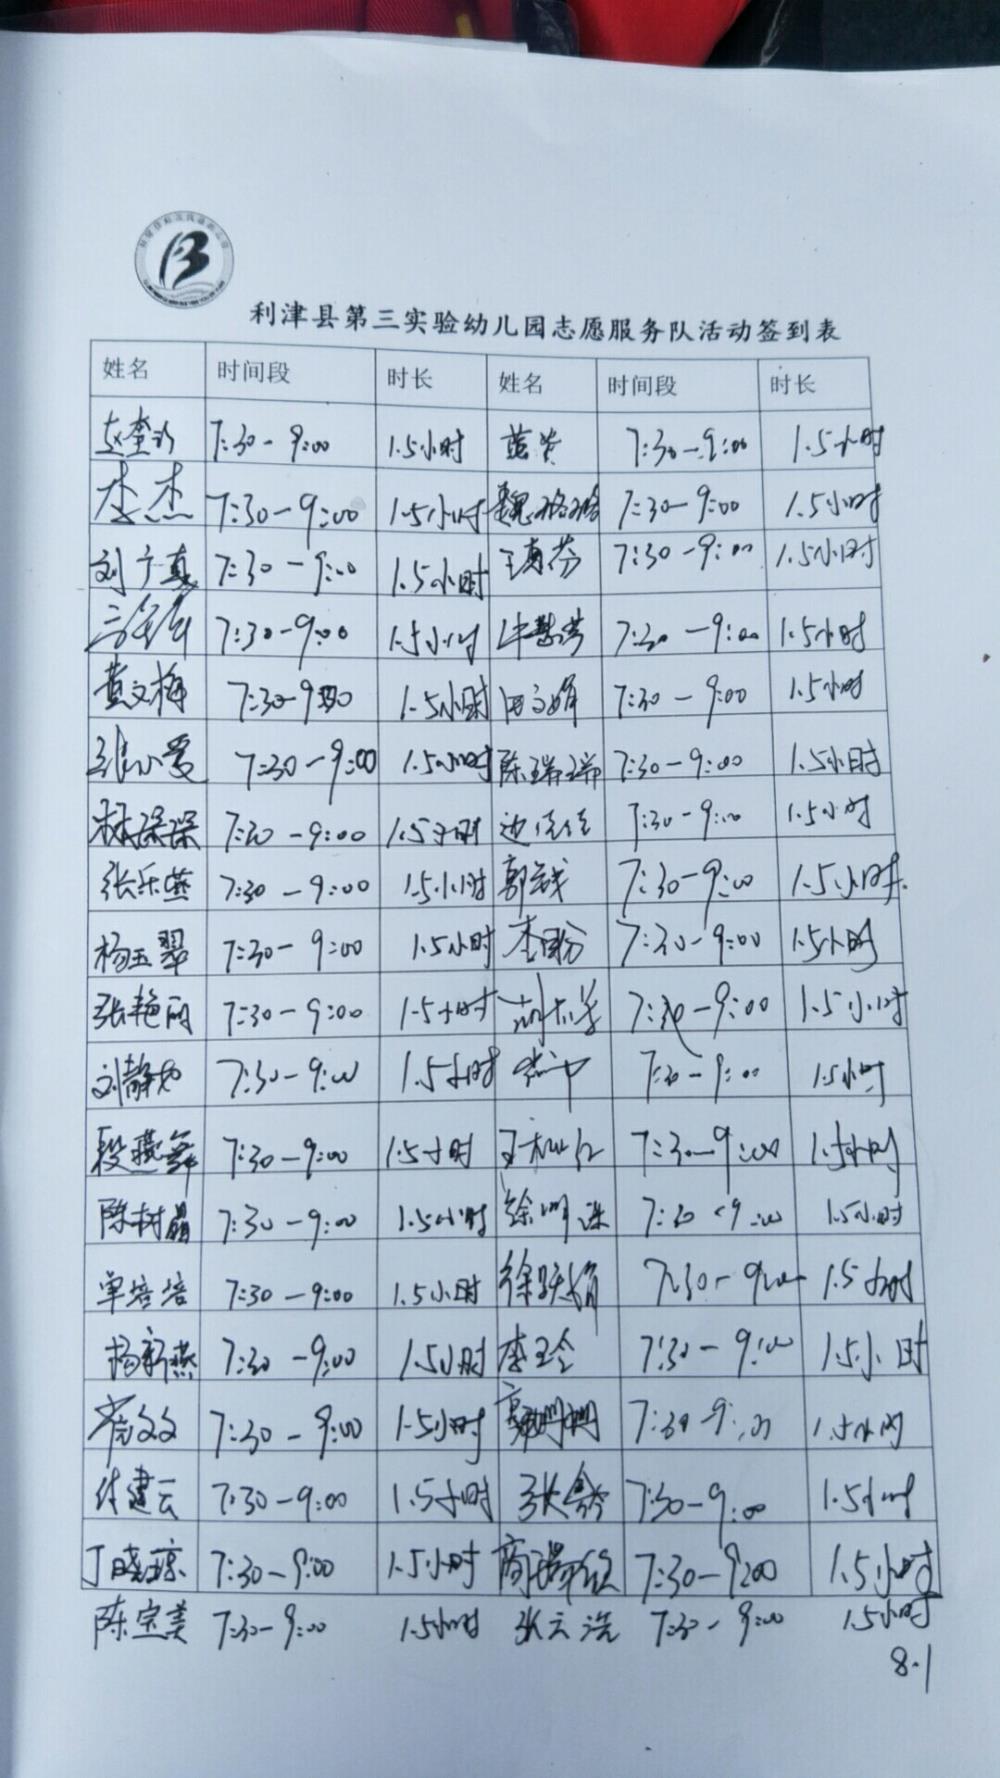 利津县第三实验幼儿园志愿服务队活动签到表
姓名 时间段 时长 姓名 时间段 时长
7:30-9:00 1.5小时 7:30-9:00 1.5小时
李杰 7:30-9:00 1.5小时 魏珞珞 7:30-9:00 1.5小时
刘广真 7:30-9:00 1.5小时 7:30-9:00 1.5小时
7:30-9:00 1.5小时 7:30-9:00 1.5小时
黄文梅 7:30-9:00 1.5小时 7:30-9:00 1.5小时
张小爱 7:30-9:00 1.5小时 陈瑞瑞 7:30-9:00 1.5小时
林深深 7:30-9:00 1.5小时 边佳佳 7:30-9:00 1.5小时
张乐燕 7:30-9:00 1.5小时 7:30-9:00 1.5小时
杨玉翠 7:30-9:00 1.5小时 7:30-9:00 1.5小时
张艳丽 7:30-9:00 1.5小时 7:30-9:00 1.5小时
7:30-9:00 1.5小时 7:30-9:00 1.5小时
7:30-9:00 1.5小时 7:30-9:00 1.5小时
陈树晶 7:30-9:00 1.5小时 7:30-9:00 1.5小时
单培培 7:30-9:00 1.5小时 徐跃娟 7:30-9:00 1.5小时
杨新燕 7:30-9:00 1.5小时 李玉玲 7:30-9:00 1.5小时
7:30-9:00 1.5小时 7:30-9:00 1.5小时
付建云 7:30-9:00 1.5小时 7:30-9:00 1.5小时
丁晓琼 7:30-9:00 1.5小时 7:30-9:00 1.5小时
陈宝美 7:30-9:00 1.5小时 张云浩 7:30-9:00 1.5小时
8.1